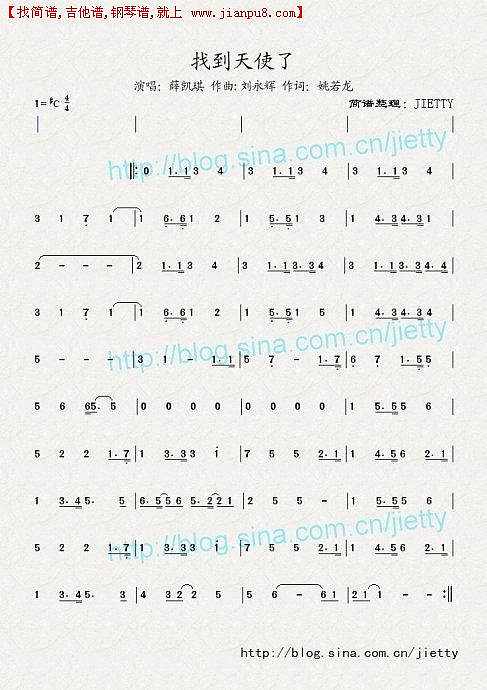 【找简谱,吉他谱,钢琴谱,就上 www.jianpu8.com】
找到天使了
演唱: 薛凯琪 作曲:刘永辉 作词: 姚若龙
1=#C 4/4
简谱整理: JIETTY
http://blog.sina.com.cn/jietty
‖:0 1.13 4 | 3 1.13 4 | 3 1.13 4 |
3 1 7 1 | 1 6.61 2 | 1 5.51 3 | 1 4.34.31 |
2 - - - | 2 1.13 4 | 3 1.13.34 | 3 1.13.4.34 |
3 1 7 1 | 1 6.61 2 | 1 5.51 3 | 1 4.34.31 |
5 - - - | 3 1 - 1.1 | 5 7 - 1.7 | 6 7 1.55 |
http://blog.sina.com.cn/jietty
5 6 65.5 | 0 0 0 0 | 0 0 0 0 | 1 5.55 5 |
5 2 2 1.7 | 1 3.33 i | 7 5 5 2.1 | 1 4.56 2.1 |
1 3.45. 5 | 6.556 5.221 | 1 5.55 5 | 1 4.56 2.1 |
http://blog.sina.com.cn/jietty
5 2 2 1.7 | 1 3.33 i | 7 5 5 2.1 | 1 4.56 2.1 |
1 3.45. 3 | 4 322 2 5 | 5 - 61 - | 21 - - :‖
http://blog.sina.com.cn/jietty